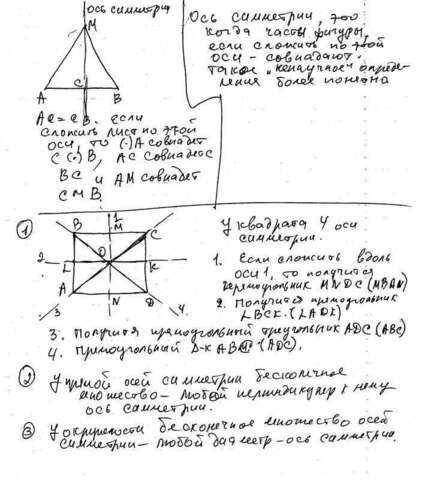 ось симметрии
M
A C B
AC = CB. если
сложить лист по этой
оси, то (·)A совпадет
с (·)B, AC совпадет с
BC и AM совпадет
с MB.
Ось симметрии, это
когда часть фигуры,
если сложить по этой
оси - совпадают.
такое "ненаучное" опреде-
ления более понятна
1
1
B M C
2. L O K
A N D
3 4.
У квадрата 4 оси
симметрии.
1. Если сложить вдоль
оси 1, то получится
прямоугольник MNDC (MBAN)
2. Получится прямоугольник
LBCK. (LADK)
3. Получится прямоугольный треугольник ADC (ABC)
4. Прямоугольный Δ-к ABD (ADC).
2 У прямой осей симметрии бесконечное
множество - любой перпендикуляр к нему
ось симметрии.
3 У окружности бесконечное множество осей
симметрии - любой диаметр - ось симметрии.